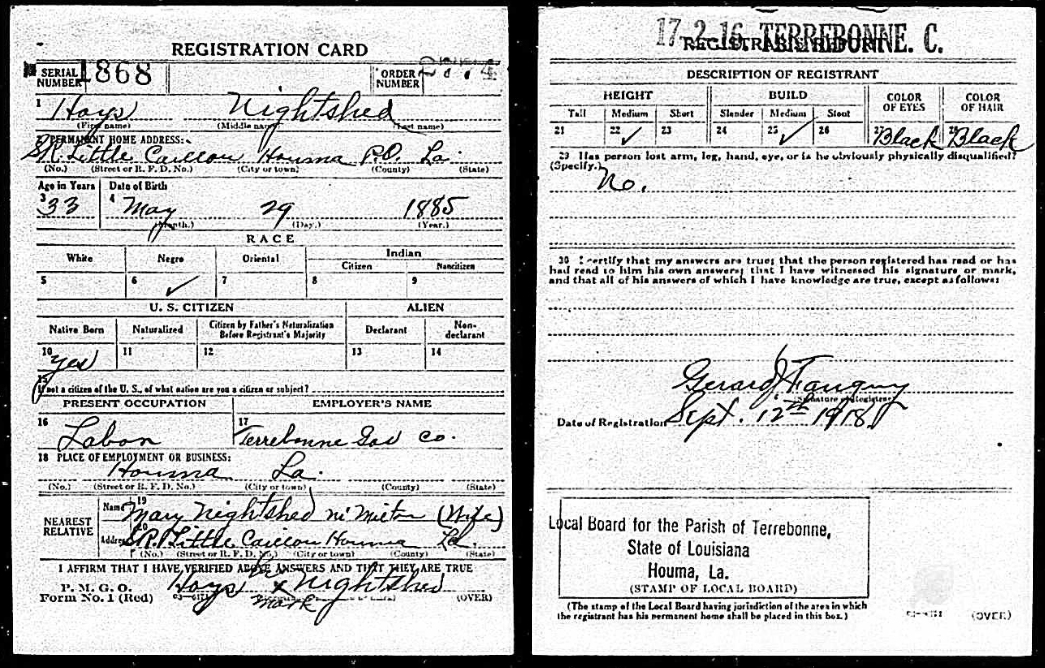 REGISTRATION CARD
SERIAL NUMBER 1868 ORDER NUMBER
1 Hays Nightshed
(First name) (Middle name) (Last name)
2 PERMANENT HOME ADDRESS:
S.R. Little Caillou Houma P.O. La.
(No.) (Street or R. F. D. No.) (City or town) (County) (State)
Age in Years Date of Birth
3 33 4 May 29 1885
(Month.) (Day.) (Year.)
RACE
White Negro Oriental Indian
Citizen Noncitizen
5 6 ✓ 7 8 9
U. S. CITIZEN ALIEN
Native Born Naturalized Citizen by Father's Naturalization Before Registrant's Majority Declarant Non-declarant
10 Yes 11 12 13 14
15
If not a citizen of the U. S., of what nation are you a citizen or subject?
PRESENT OCCUPATION EMPLOYER'S NAME
16 Labor 17 Terrebonne Gas Co.
18 PLACE OF EMPLOYMENT OR BUSINESS:
Houma La.
(No.) (Street or R. F. D. No.) (City or town) (County) (State)
NEAREST RELATIVE
Name 19 Mary Nightshed (Wife)
Address 20 S.R. Little Caillou Houma La.
(No.) (Street or R. F. D. No.) (City or town) (County) (State)
I AFFIRM THAT I HAVE VERIFIED ABOVE ANSWERS AND THAT THEY ARE TRUE
P. M. G. O.
Form No. 1 (Red) Hays his x mark Nightshed (OVER)
17 2 16 TERREBONNE. C.
REGISTRAR'S REPORT
DESCRIPTION OF REGISTRANT
HEIGHT BUILD COLOR OF EYES COLOR OF HAIR
Tall Medium Short Slender Medium Stout
21 22 ✓ 23 24 25 ✓ 26 27 Black 28 Black
29 Has person lost arm, leg, hand, eye, or is he obviously physically disqualified?
(Specify.) No.
30 I certify that my answers are true; that the person registered has read or has
had read to him his own answers; that I have witnessed his signature or mark,
and that all of his answers of which I have knowledge are true, except as follows:
Gerard J Fanguy
(Signature of Registrar)
Date of Registration Sept. 12th 1918
Local Board for the Parish of Terrebonne,
State of Louisiana
Houma, La.
(STAMP OF LOCAL BOARD)
(The stamp of the Local Board having jurisdiction of the area in which
the registrant has his permanent home shall be placed in this box.)
(OVER)